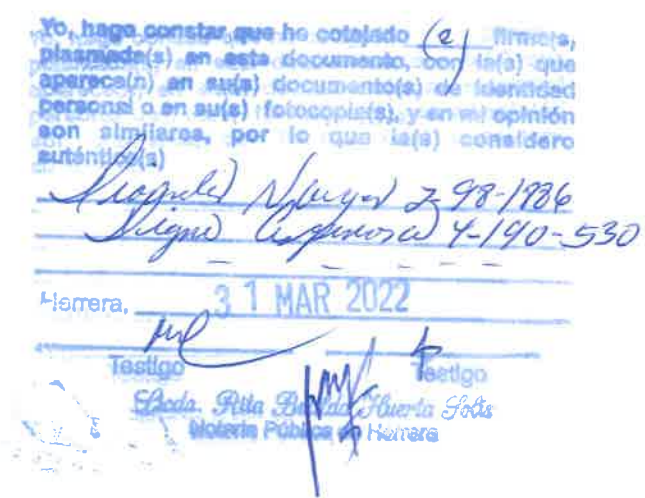 Yo, hago constar que he cotejado (2) firma(s),
plasmada(s) en este documento, con la(s) que
aparece(n) en su(s) documento(s) de identidad
personal o en su(s) fotocopia(s), y en mi opinión
son similares, por lo que la(s) considero
auténtica(s)
2-98-1986
Espinosa 4-190-530
Herrera, 31 MAR 2022
Testigo Testigo
Licda. Rita Huerta Solis
Notaria Pública en Herrera